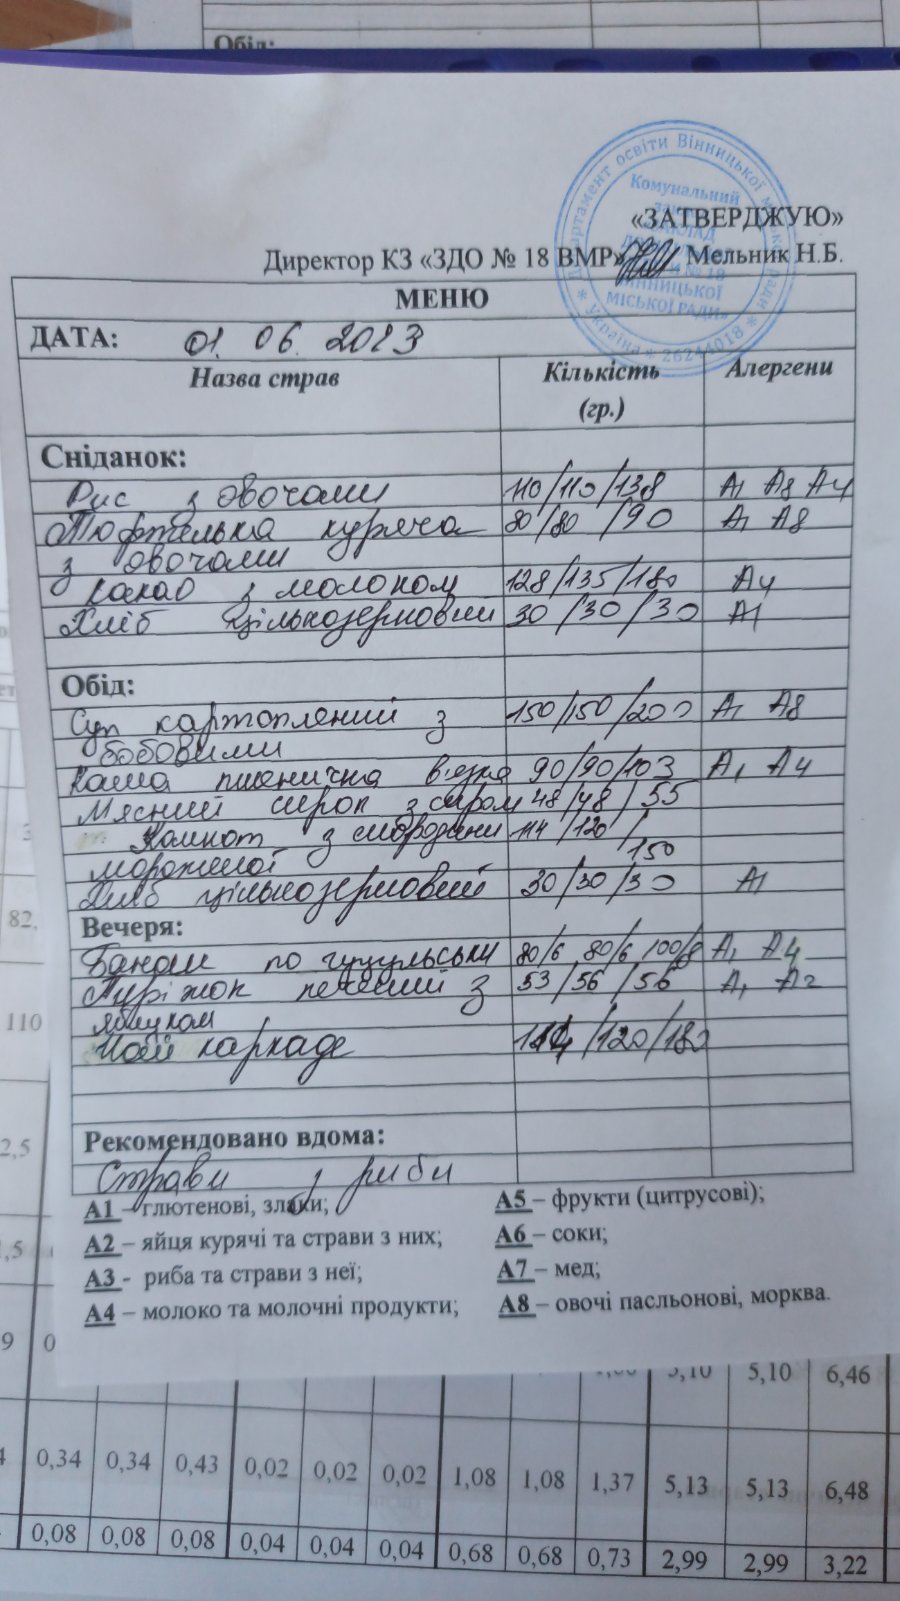 Обід:
«ЗАТВЕРДЖУЮ»
Директор КЗ «ЗДО № 18 ВМР» Мельник Н.Б.
Департамент освіти Вінницької міської ради * Україна * 26244018 *
Комунальний
заклад
«ЗАКЛАД
№ 18
ВІННИЦЬКОЇ
МІСЬКОЇ РАДИ»
МЕНЮ
ДАТА: 01. 06. 2023
Назва страв Кількість (гр.) Алергени
Сніданок:
Рис з овочами 110/110/138 А1 А8 А4
Тюфтелька куряча 80/80/90 А1 А8
з овочами
Какао з молоком 128/135/180 А4
Хліб цільнозерновий 30/30/30 А1
Обід:
Суп картопляний з 150/150/200 А1 А8
бобовими
Каша пшенична в'язка 90/90/103 А1 А4
Мясний сирок з сиром 48/48/55
Компот з смородини 114/120/
150
мороженої
Хліб цільнозерновий 30/30/30 А1
Вечеря:
Банош по гуцульськи 80/6 80/6 100/8 А1 А4
Пиріжок печений з 53/56/56 А1 А2
яблуком
Чай каркаде 114/120/180
Рекомендовано вдома:
Страви з риби
А1 – глютенові, злаки;
А2 – яйця курячі та страви з них;
А3 - риба та страви з неї;
А4 – молоко та молочні продукти;
А5 – фрукти (цитрусові);
А6 – соки;
А7 – мед;
А8 – овочі пасльонові, морква.
82,
110
2,5
1,5
9 0
5,10 5,10 6,46
4 0,34 0,34 0,43 0,02 0,02 0,02 1,08 1,08 1,37 5,13 5,13 6,48
0,08 0,08 0,08 0,04 0,04 0,04 0,68 0,68 0,73 2,99 2,99 3,22